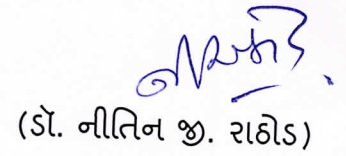 (ડૉ. નીતિન જી. રાઠોડ)